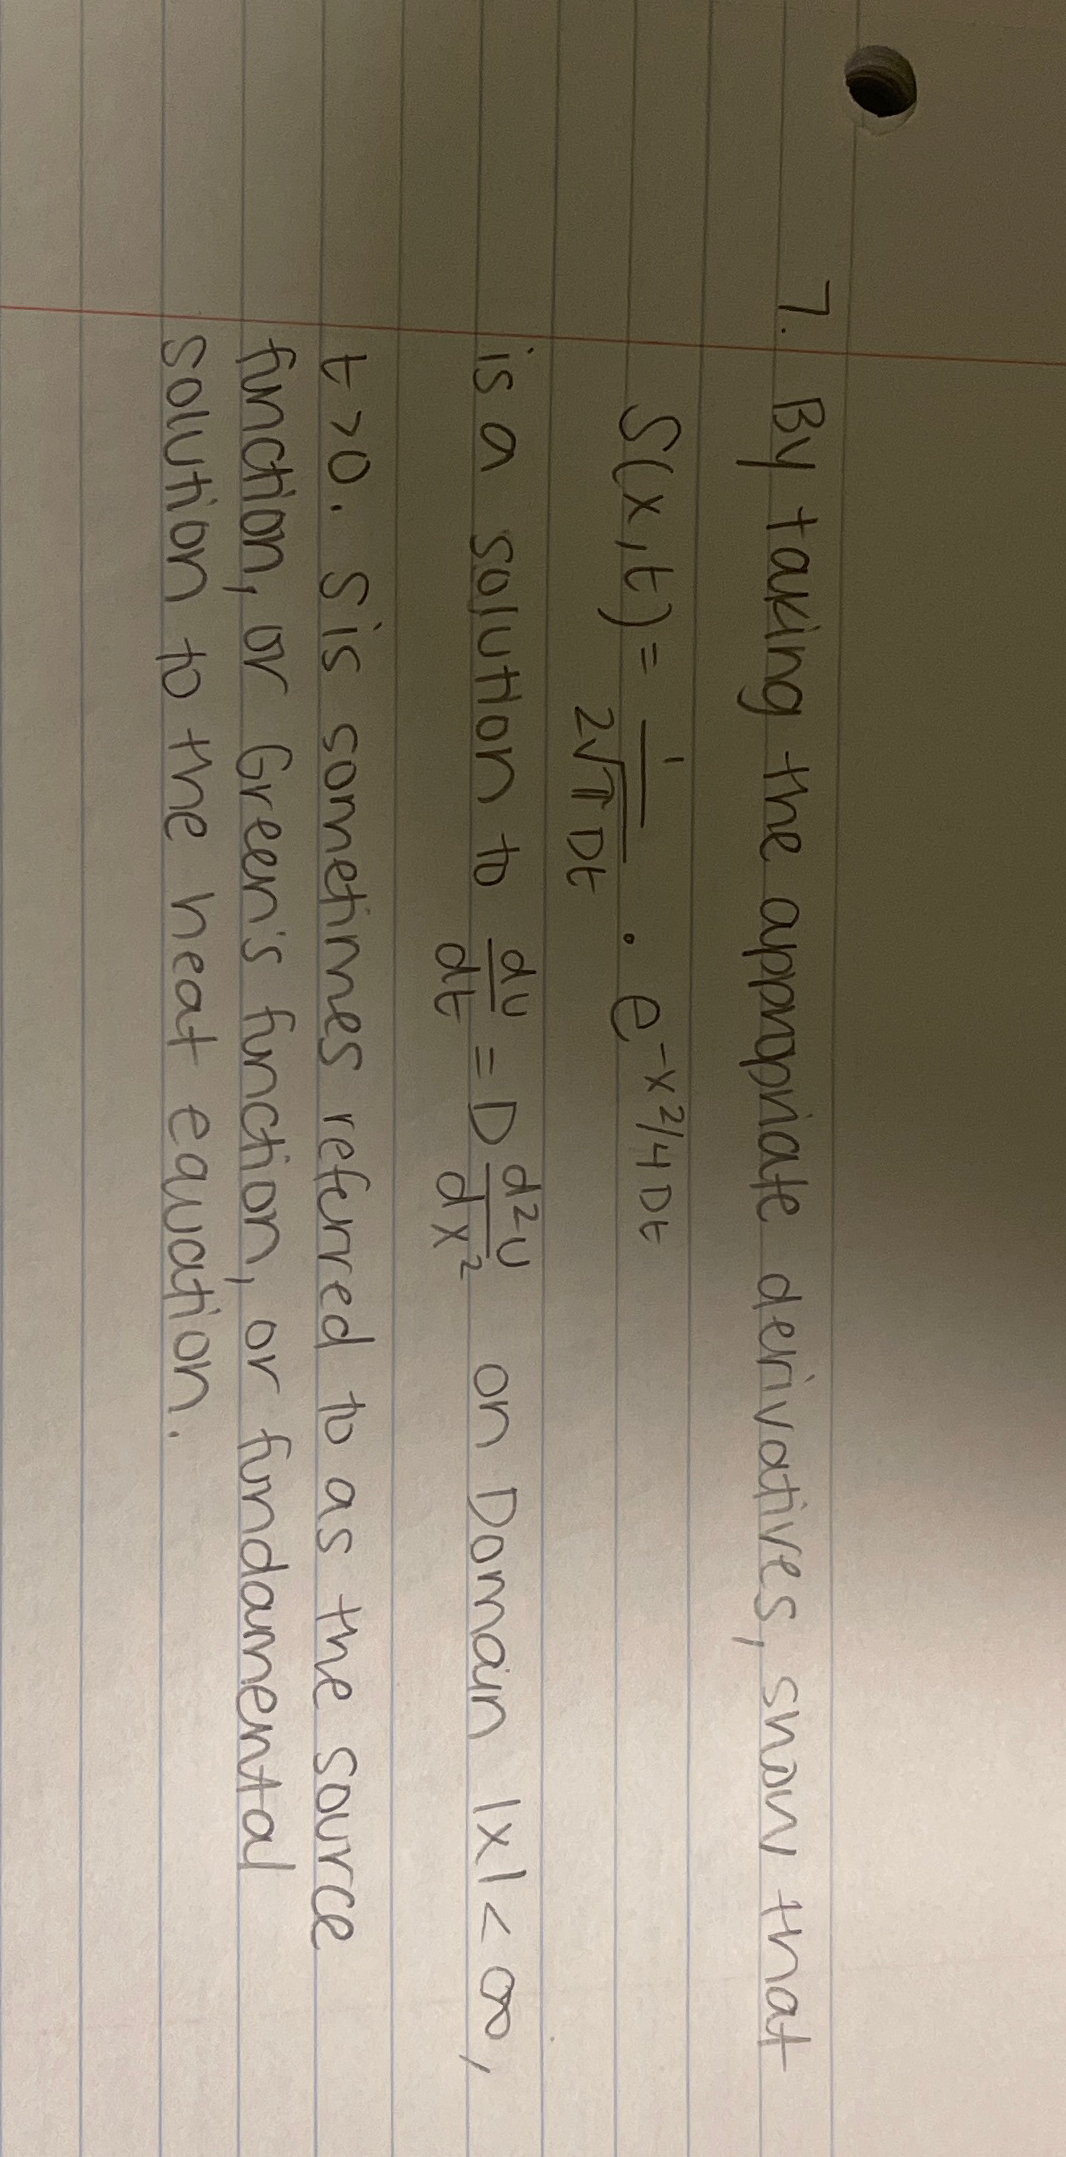 7. By taking the appropriate derivatives, show that
S(x,t) = 1/(2√πDt) · e^(-x²/4Dt)
is a solution to du/dt = D d²u/dx² on Domain |x| < ∞,
t > 0. S is sometimes referred to as the source
function, or Green's function, or fundamental
solution to the heat equation.